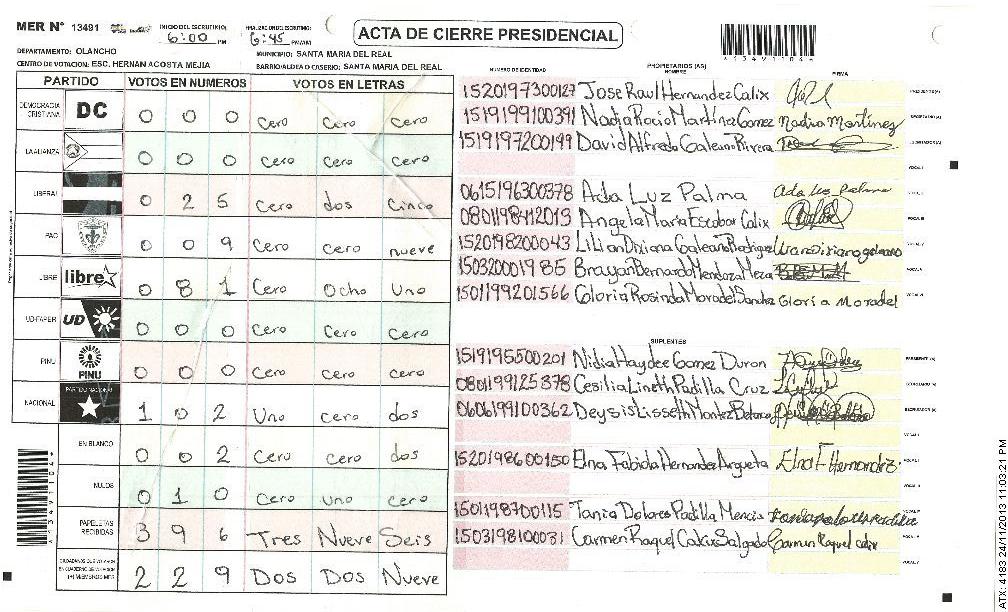 MER N° 13491
INICIO DEL ESCRUTINIO: 6:00 PM
FINALIZACION DEL ESCRUTINIO: 6:45 PM/AM
ACTA DE CIERRE PRESIDENCIAL
*13491104*
DEPARTAMENTO: OLANCHO
MUNICIPIO: SANTA MARIA DEL REAL
CENTRO DE VOTACION: ESC. HERNAN ACOSTA MEJIA
BARRIO/ALDEA O CASERIO: SANTA MARIA DEL REAL
PARTIDO VOTOS EN NUMEROS VOTOS EN LETRAS
DEMOCRACIA CRISTIANA DC 0 0 0 Cero Cero Cero
LA ALIANZA 0 0 0 Cero Cero Cero
LIBERAL 0 2 5 Cero dos Cinco
PAC 0 0 9 Cero Cero nueve
LIBRE libre 0 8 1 Cero Ocho Uno
UD-FAPER UD 0 0 0 Cero Cero Cero
PINU PINU 0 0 0 Cero Cero Cero
NACIONAL PARTIDO NACIONAL 1 0 2 Uno cero dos
EN BLANCO 0 0 2 Cero Cero dos
NULOS 0 1 0 Cero uno cero
PAPELETAS RECIBIDAS 3 9 6 Tres Nueve Seis
2 2 9 Dos Dos Nueve
NUMERO DE IDENTIDAD PROPIETARIOS (AS) NOMBRE FIRMA
1520197300127 Jose Raul Hernandez Calix PRESIDENTE(A)
1519199100391 Nadia Rocio Martinez Gomez Nadia Martinez SECRETARIO(A)
1519197200199 David Alfredo Galeano Rivera ESCRUTADOR(A)
VOCAL I
0615196300378 Ada Luz Palma Ada luz palma
0801198412013 Angela Maria Escobar Calix
1520198200043 Lilian Diviana Galeano
150320001985 Brayan Bernardo Mendoza Meza
1501199201566 Gloria Rosinda Moradel Gloria Moradel
SUPLENTES
1519195500201 Nidia Haydee Gomez Duron
0801199125378 Cesilia Lineth Padilla Cruz
0606199100362 Deysis Lisseth Montez
1520198600150 Elna Fabiola Hernandez Argueta Elna F Hernandez
1501198700115 Tania Dolores Padilla Mencis
1503198100031 Carmen Raquel Calix Salgado Carmen Raquel calix
*13491104*
ATX: 4183 24/11/2013 11:03:21 PM